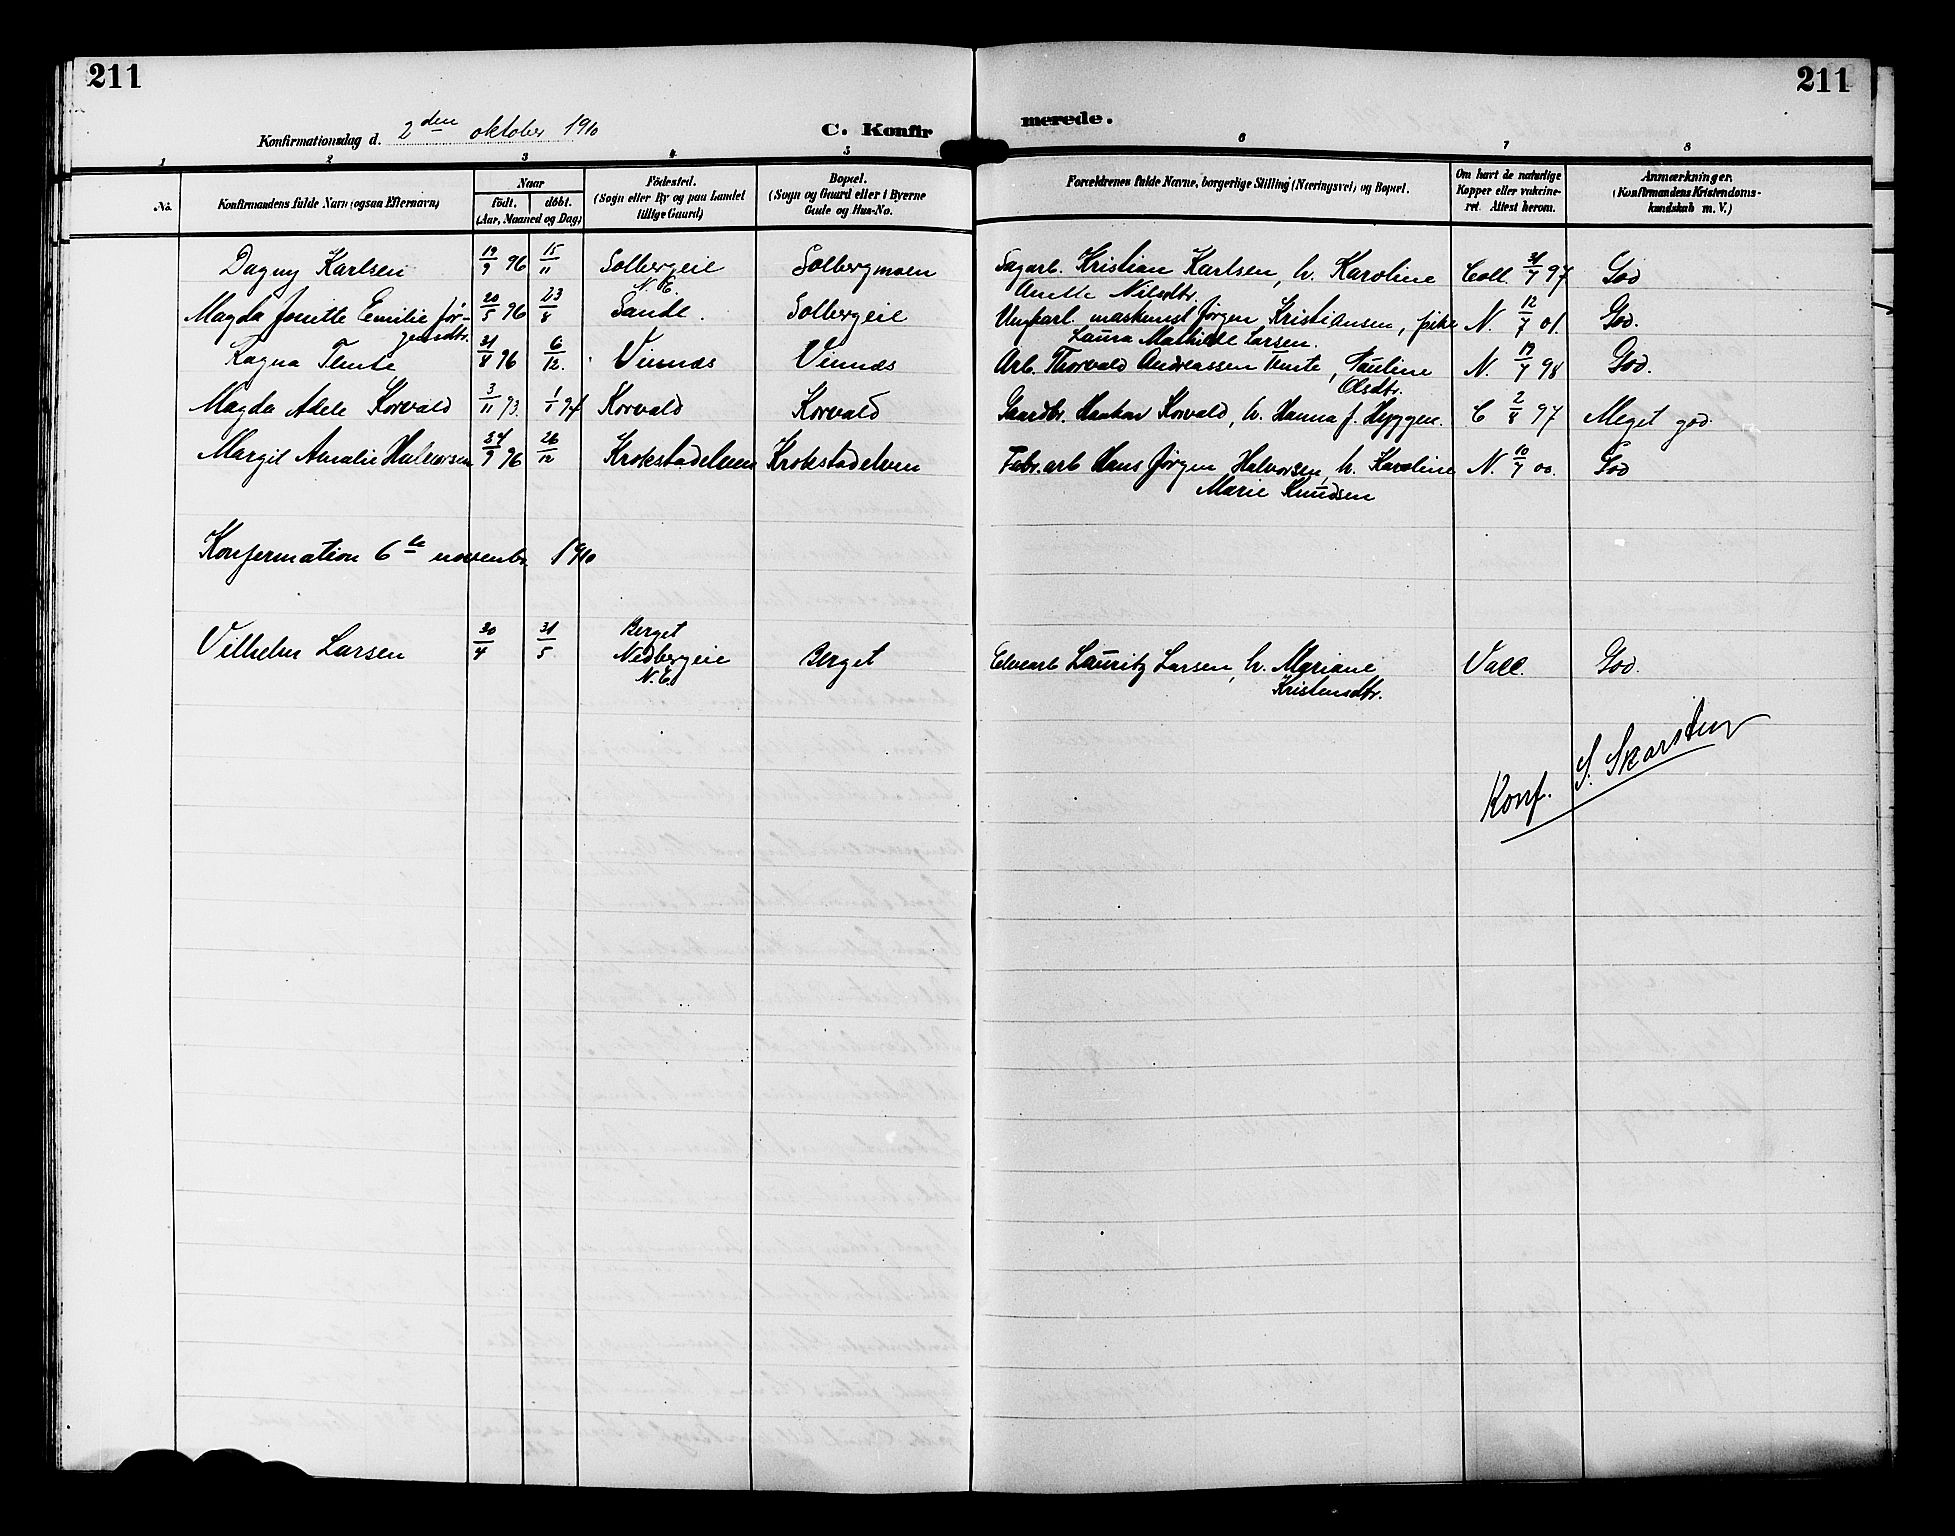 211
211
Konfirmationsdag d. 2den oktober 1910
C. Konfirmerede.
1 2 3 4 5 6 7 8
No.
Konfirmandens fulde Navn (ogsaa Efternavn)
Naar
født. døbt.
(Aar, Maaned og Dag)
Fødested.
(Sogn eller By og paa Landet
tillige Gaard)
Bopæl.
(Sogn og Gaard eller i Byerne
Gade og Hus-No.
Forældrenes fulde Navne, borgerlige Stilling (Næringsvei) og Bopæl.
Om havt de naturlige
Kopper eller vakcine-
ret. Attest herom.
Anmærkninger.
(Konfirmandens Kristendoms-
kundskab m. V.)
Dagny Karlsen 19/9 96 15/11 Solbergeie N.E. Solbergmoen Sagarb. Kristian Karlsen, h. Karoline Anette Nilsdtr. Coll. 31/7 97 God
Magda Josette Emilie Jør-
gensdtr. 20/5 96 23/8 Sande. Solbergeie Ungkarl. maskinist Jørgen Kristiansen, pike
Laura Mathilde Larsen. N. 12/7 01. God.
Ragna Tente 31/8 96 6/12. Vinnæs Vinnæs Arb. Thorvald Andreassen Tente, Pauline
Olsdtr. N. 19/7 98 God.
Magda Adele Korvald 3/11 93. 1/1 94 Korvald Korvald Gaardbr. Haakon Korvald, h. Hanna f. Hyggen. C 2/8 97 Meget god.
Margit Amalie Halvorsen 24/9 96 26/12 Krokstadelven Krokstadelven Fabr.arb Hans Jørgen Halvorsen, h. Karoline
Marie Knudsen N. 10/7 00. God
Konfermation 6te novembr 1910
Vilhelm Larsen 30/4 31/5 Berget
Nedbergeie
N.E. Berget Elvearb Lauritz Larsen, h. Mariane
Kristensdtr. Vacc. God.
Konf. S. Skarsten